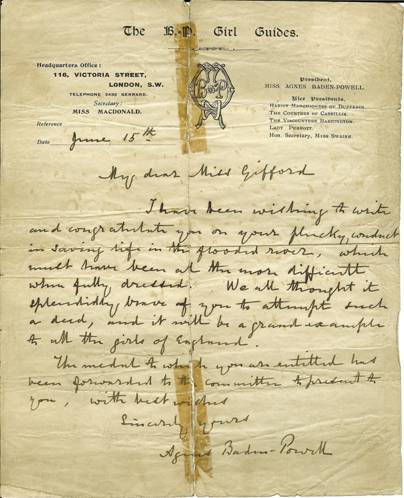 The B.-P. Girl Guides.
Headquarters Office:
116, VICTORIA STREET,
LONDON, S.W.
TELEPHONE 2432 GERRARD.
Secretary:
MISS MACDONALD.
President.
MISS AGNES BADEN-POWELL.
Vice Presidents.
HARIOT MARCHIONESS OF DUFFERIN.
THE COUNTESS OF CASSILLIS.
THE VISCOUNTESS BARRINGTON.
LADY PERROTT.
Hon. Secretary, MISS SWAINE.
Reference
Date June 15th
My dear Miss Gifford
I have been wishing to write
and congratulate you on your plucky conduct
in saving life in the flooded river, which
must have been all the more difficult
when fully dressed. We all thought it
splendidly brave of you to attempt such
a deed, and it will be a grand example
to all the girls of England.
The medal to which you are entitled has
been forwarded to the Committee to present to
you, with best wishes
Sincerely yours
Agnes Baden-Powell